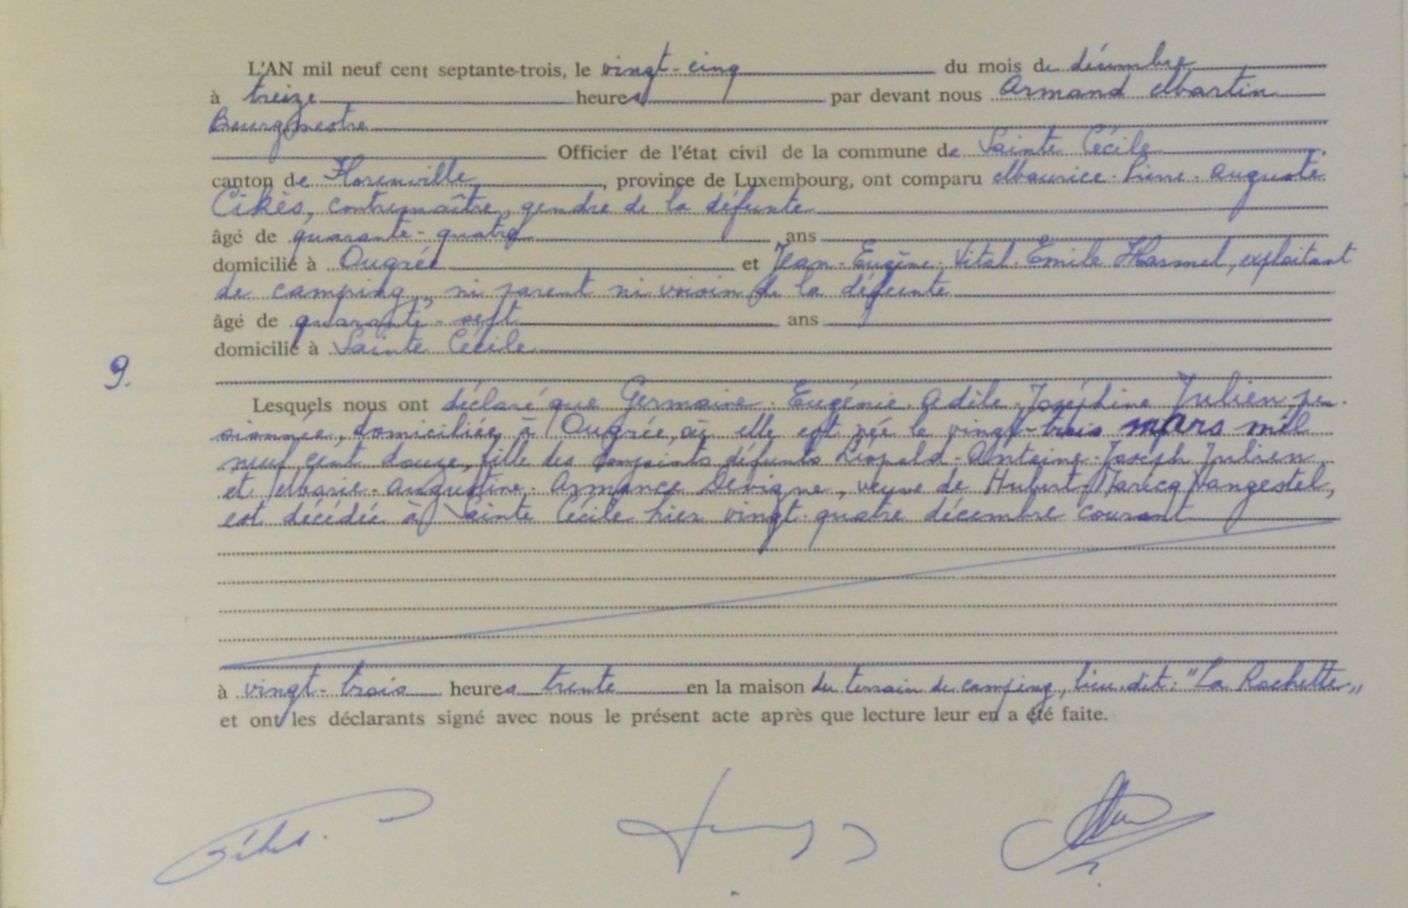 L'AN mil neuf cent septante-trois, le vingt-cinq du mois de décembre
à treize heures par devant nous Armand Martin
Bourgmestre
Officier de l'état civil de la commune de Sainte Cécile
canton de Florenville, province de Luxembourg, ont comparu Maurice-Pierre-Auguste
Cikès, contremaître, gendre de la défunte
âgé de quarante-quatre ans
domicilié à Ougrée et Jean-Eugène-Vital-Emile Harmel, exploitant
de camping, ni parent ni voisin de la défunte
âgé de quarante-sept ans
domicilié à Sainte Cécile
9.
Lesquels nous ont déclaré que Germaine-Eugénie-Adèle-Joséphine Julien, pen-
sionnée, domiciliée à Ougrée, où elle est née le vingt-trois mars mil
neuf cent douze, fille des conjoints défunts Léopold-Antoine-Joseph Julien
et Marie-Augustine-Armance Devigne, veuve de Hubert Maricq Vangestel,
est décédée à Sainte Cécile hier vingt-quatre décembre courant
à vingt-trois heures trente en la maison du terrain de camping, lieu-dit: "La Rochette"
et ont les déclarants signé avec nous le présent acte après que lecture leur en a été faite.